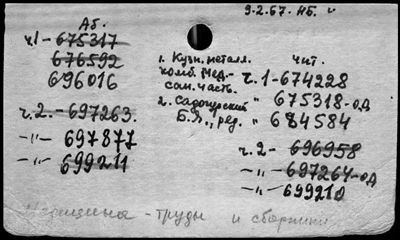 9-2.67. НБ. "
Аб.
ч1- 675317
676592
696016
ч.2.- 697263.
-"- 697877
-"- 699211
1. Кузн. металл.
комб. Мед.-
сан. часть.
2. Садогурский
Б.Я., ред.
чит.
ч.1-674228
" 675318-од
" 684584
ч.2- 696958
-"- 697264-од
-"- 699210
Медицина - труды и сборники